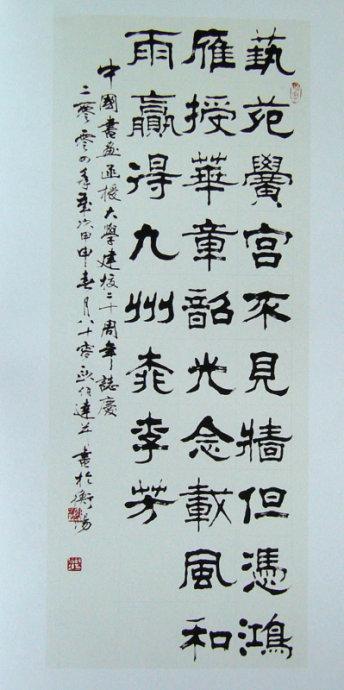 藝苑黌宮不見牆但憑鴻
雁授華章韶光念載風和
雨贏得九州桃李芳
中國書畫函授大學建校二十周年誌慶
二零零四年歲次甲申春月八十零伍達並書於衡陽